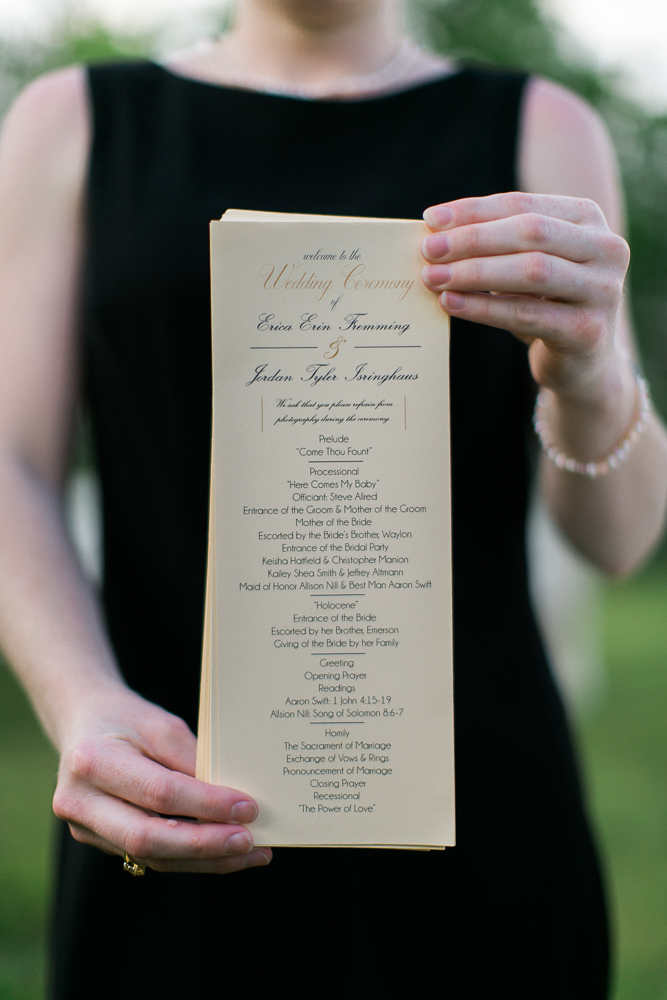 welcome to the
Wedding Ceremony
of
Erica Erin Fremming
&
Jordan Tyler Isringhaus
We ask that you please refrain from
photography during the ceremony.
Prelude
"Come Thou Fount"
Processional
"Here Comes My Baby"
Officiant: Steve Allred
Entrance of the Groom & Mother of the Groom
Mother of the Bride
Escorted by the Bride's Brother, Waylon
Entrance of the Bridal Party
Keisha Hatfield & Christopher Manion
Kailey Shea Smith & Jeffrey Altmann
Maid of Honor Allison Nill & Best Man Aaron Swift
"Holocene"
Entrance of the Bride
Escorted by her Brother, Emerson
Giving of the Bride by her Family
Greeting
Opening Prayer
Readings
Aaron Swift: 1 John 4:15-19
Allsion Nill: Song of Solomon 8:6-7
Homily
The Sacrament of Marriage
Exchange of Vows & Rings
Pronouncement of Marriage
Closing Prayer
Recessional
"The Power of Love"